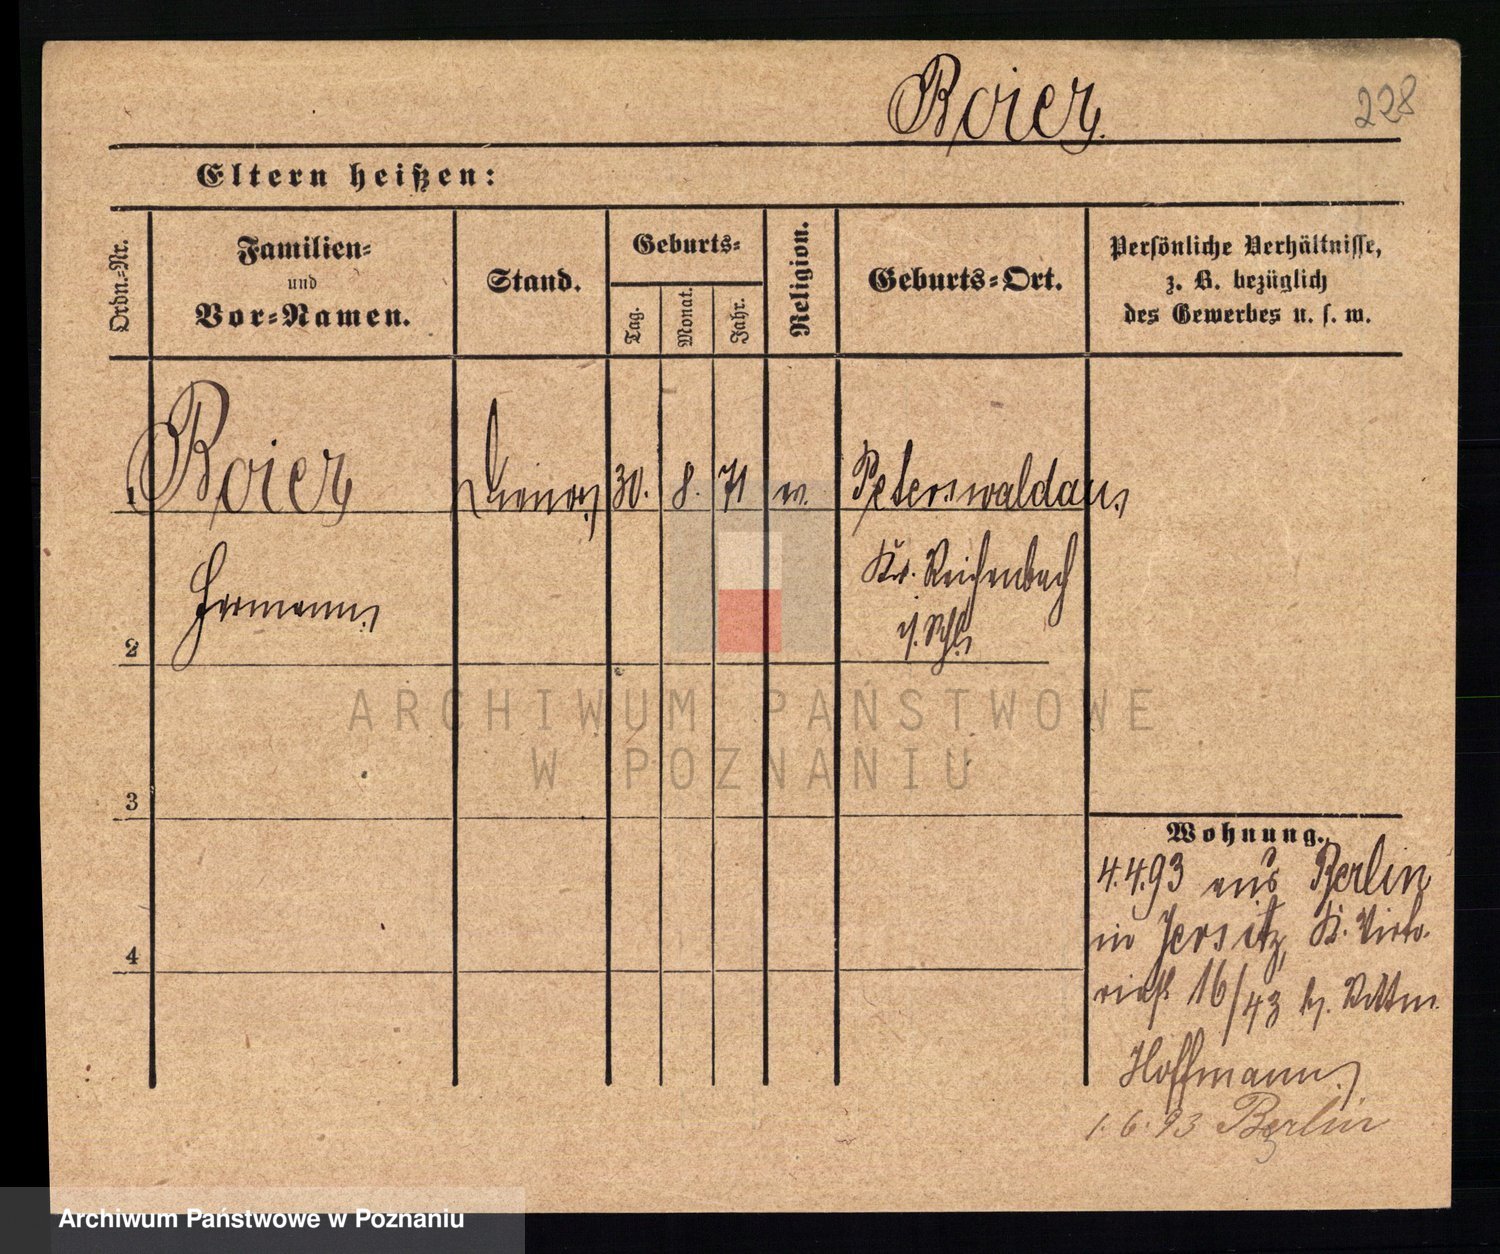 Boier.
228
Eltern heißen:
Ordn.-Nr.
Familien-
und
Vor-Namen.
Stand.
Geburts-
Tag.
Monat.
Jahr.
Religion.
Geburts-Ort.
Persönliche Verhältnisse,
z. B. bezüglich
des Gewerbes u. s. w.
Boier Diener 30. 8. 71 ev. Peterswaldau
Hermann
Kr. Reichenbach
i/. Schl.
2
3
4
Wohnung.
4.4.93 aus Berlin
in Jersitz, K. Victo-
riastr 16/43 b/. Rittm.
Hoffmann
1.6.93 Berlin
ARCHIWUM PAŃSTWOWE
W POZNANIU
Archiwum Państwowe w Poznaniu